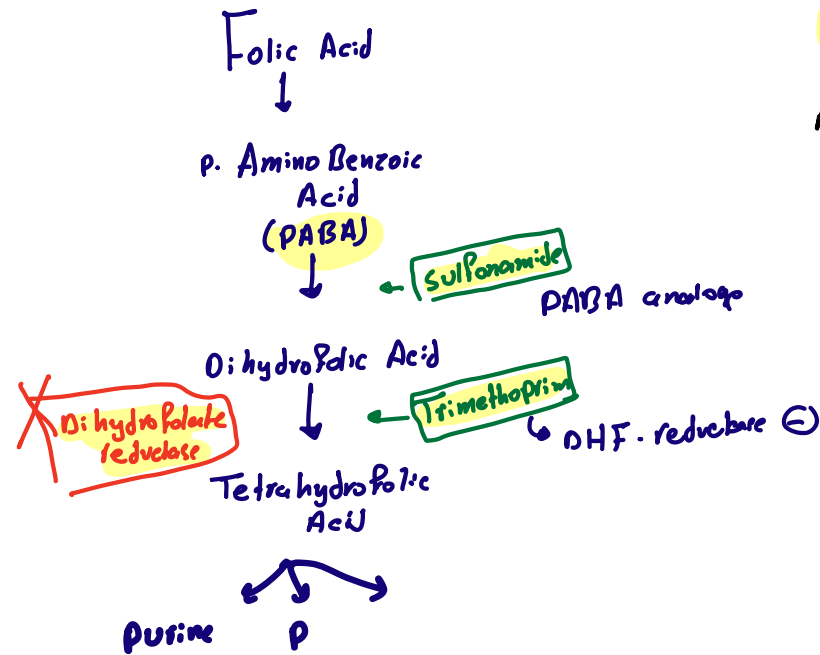 Folic Acid
p. Amino Benzoic
Acid
(PABA)
Sulfonamide
PABA analogo
Dihydrofolic Acid
Trimethoprim
DHF-reductase (-)
Dihydrofolate
reductase
Tetrahydrofolic
Acid
Purine P